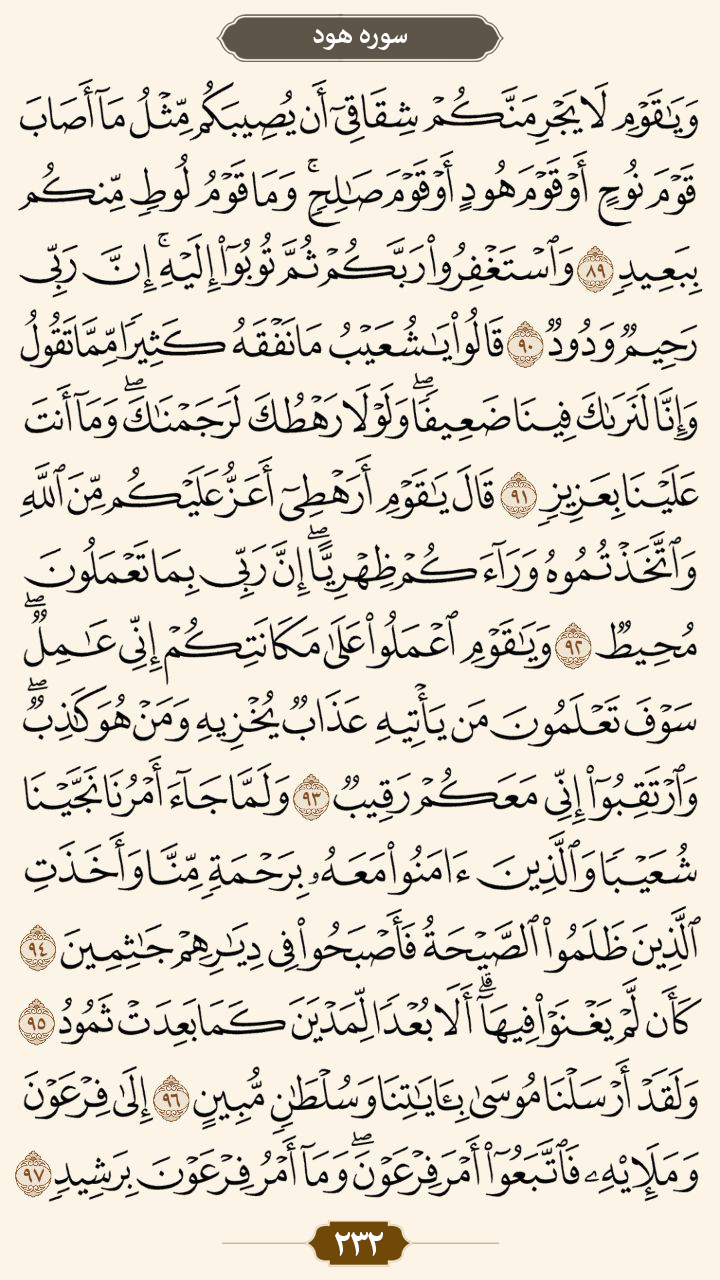 سوره هود
وَيَٰقَوْمِ لَا يَجْرِمَنَّكُمْ شِقَاقِيٓ أَن يُصِيبَكُم مِّثْلُ مَآ أَصَابَ
قَوْمَ نُوحٍ أَوْ قَوْمَ هُودٍ أَوْ قَوْمَ صَٰلِحٍۚ وَمَا قَوْمُ لُوطٍ مِّنكُم
بِبَعِيدٍ ٨٩ وَٱسْتَغْفِرُوا۟ رَبَّكُمْ ثُمَّ تُوبُوٓا۟ إِلَيْهِۚ إِنَّ رَبِّى
رَحِيمٌ وَدُودٌ ٩٠ قَالُوا۟ يَٰشُعَيْبُ مَا نَفْقَهُ كَثِيرًا مِّمَّا تَقُولُ
وَإِنَّا لَنَرَىٰكَ فِينَا ضَعِيفًاۖ وَلَوْلَا رَهْطُكَ لَرَجَمْنَٰكَۖ وَمَآ أَنتَ
عَلَيْنَا بِعَزِيزٍ ٩١ قَالَ يَٰقَوْمِ أَرَهْطِىٓ أَعَزُّ عَلَيْكُم مِّنَ ٱللَّهِ
وَٱتَّخَذْتُمُوهُ وَرَآءَكُمْ ظِهْرِيًّاۖ إِنَّ رَبِّى بِمَا تَعْمَلُونَ
مُحِيطٌ ٩٢ وَيَٰقَوْمِ ٱعْمَلُوا۟ عَلَىٰ مَكَانَتِكُمْ إِنِّى عَٰمِلٌۖ
سَوْفَ تَعْلَمُونَ مَن يَأْتِيهِ عَذَابٌ يُخْزِيهِ وَمَنْ هُوَ كَٰذِبٌۖ
وَٱرْتَقِبُوٓا۟ إِنِّى مَعَكُمْ رَقِيبٌ ٩٣ وَلَمَّا جَآءَ أَمْرُنَا نَجَّيْنَا
شُعَيْبًا وَٱلَّذِينَ ءَامَنُوا۟ مَعَهُۥ بِرَحْمَةٍ مِّنَّا وَأَخَذَتِ
ٱلَّذِينَ ظَلَمُوا۟ ٱلصَّيْحَةُ فَأَصْبَحُوا۟ فِى دِيَٰرِهِمْ جَٰثِمِينَ ٩٤
كَأَن لَّمْ يَغْنَوْا۟ فِيهَآۗ أَلَا بُعْدًا لِّمَدْيَنَ كَمَا بَعِدَتْ ثَمُودُ ٩٥
وَلَقَدْ أَرْسَلْنَا مُوسَىٰ بِـَٔايَٰتِنَا وَسُلْطَٰنٍ مُّبِينٍ ٩٦ إِلَىٰ فِرْعَوْنَ
وَمَلَإِي۟هِۦ فَٱتَّبَعُوٓا۟ أَمْرَ فِرْعَوْنَۖ وَمَآ أَمْرُ فِرْعَوْنَ بِرَشِيدٍ ٩٧
٢٣٢